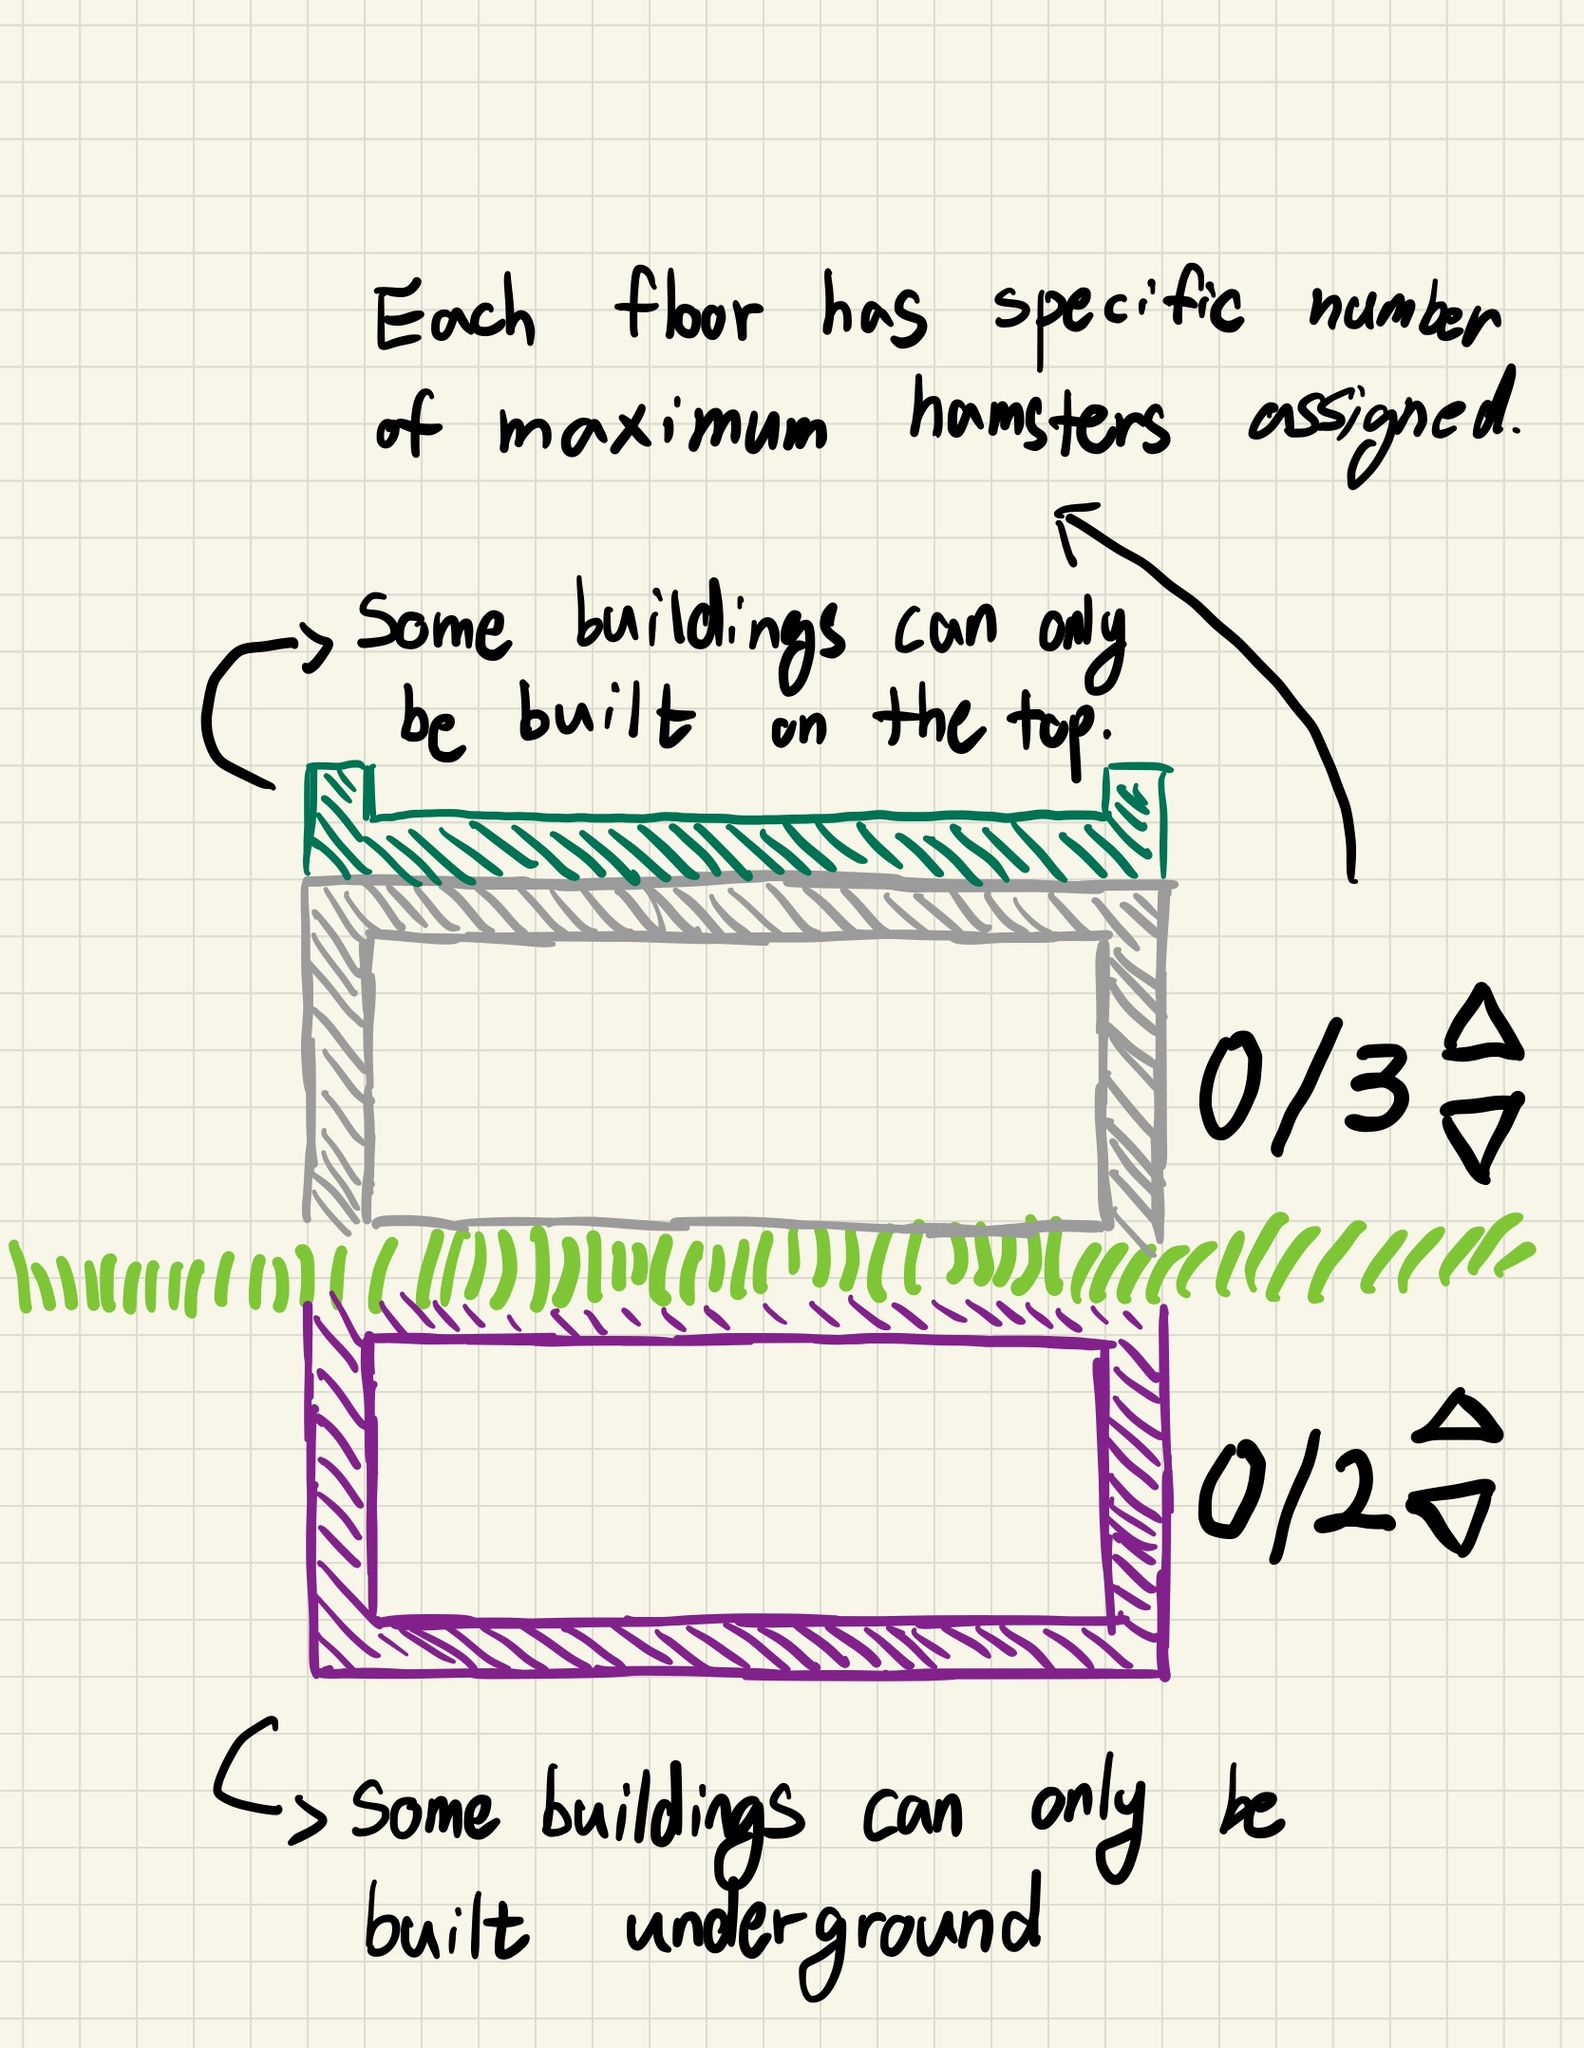 Each floor has specific number
of maximum hamsters assigned.
Some buildings can only
be built on the top.
0/3
0/2
Some buildings can only be
built underground